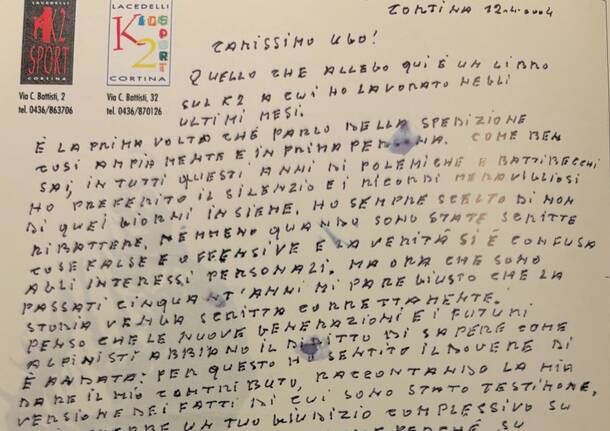 LACEDELLI
K2
SPORT
CORTINA
Via C. Battisti, 2
tel. 0436/863706
LACEDELLI
KIDS
K2
SPORT
CORTINA
Via C. Battisti, 32
tel. 0436/870126
CORTINA 12.4.2004
CARISSIMO UGO!
QUELLO CHE ALLEGO QUI È UN LIBRO
SUL K2 A CUI HO LAVORATO NEGLI
ULTIMI MESI.
È LA PRIMA VOLTA CHE PARLO DELLA SPEDIZIONE
COSI AMPIAMENTE E IN PRIMA PERSONA. COME BEN
SAI, IN TUTTI QUESTI ANNI DI POLEMICHE E BATTIBECCHI
HO PREFERITO IL SILENZIO E I RICORDI MERAVIGLIOSI
DI QUEI GIORNI INSIEME. HO SEMPRE SCELTO DI NON
RIBATTERE, NEMMENO QUANDO SONO STATE SCRITTE
COSE FALSE E OFFENSIVE E LA VERITÀ SI È CONFUSA
AGLI INTERESSI PERSONALI. MA ORA CHE SONO
PASSATI CINQUANT'ANNI MI PARE GIUSTO CHE LA
STORIA VENGA SCRITTA CORRETTAMENTE.
PENSO CHE LE NUOVE GENERAZIONI E I FUTURI
ALPINISTI ABBIANO IL DIRITTO DI SAPERE COME
È ANDATA: PER QUESTO HO SENTITO IL DOVERE DI
DARE IL MIO CONTRIBUTO, RACCONTANDO LA MIA
VERSIONE DEI FATTI DI CUI SONO STATO TESTIMONE.
UN TUO GIUDIZIO COMPLESSIVO SU
PERCHÉ SU